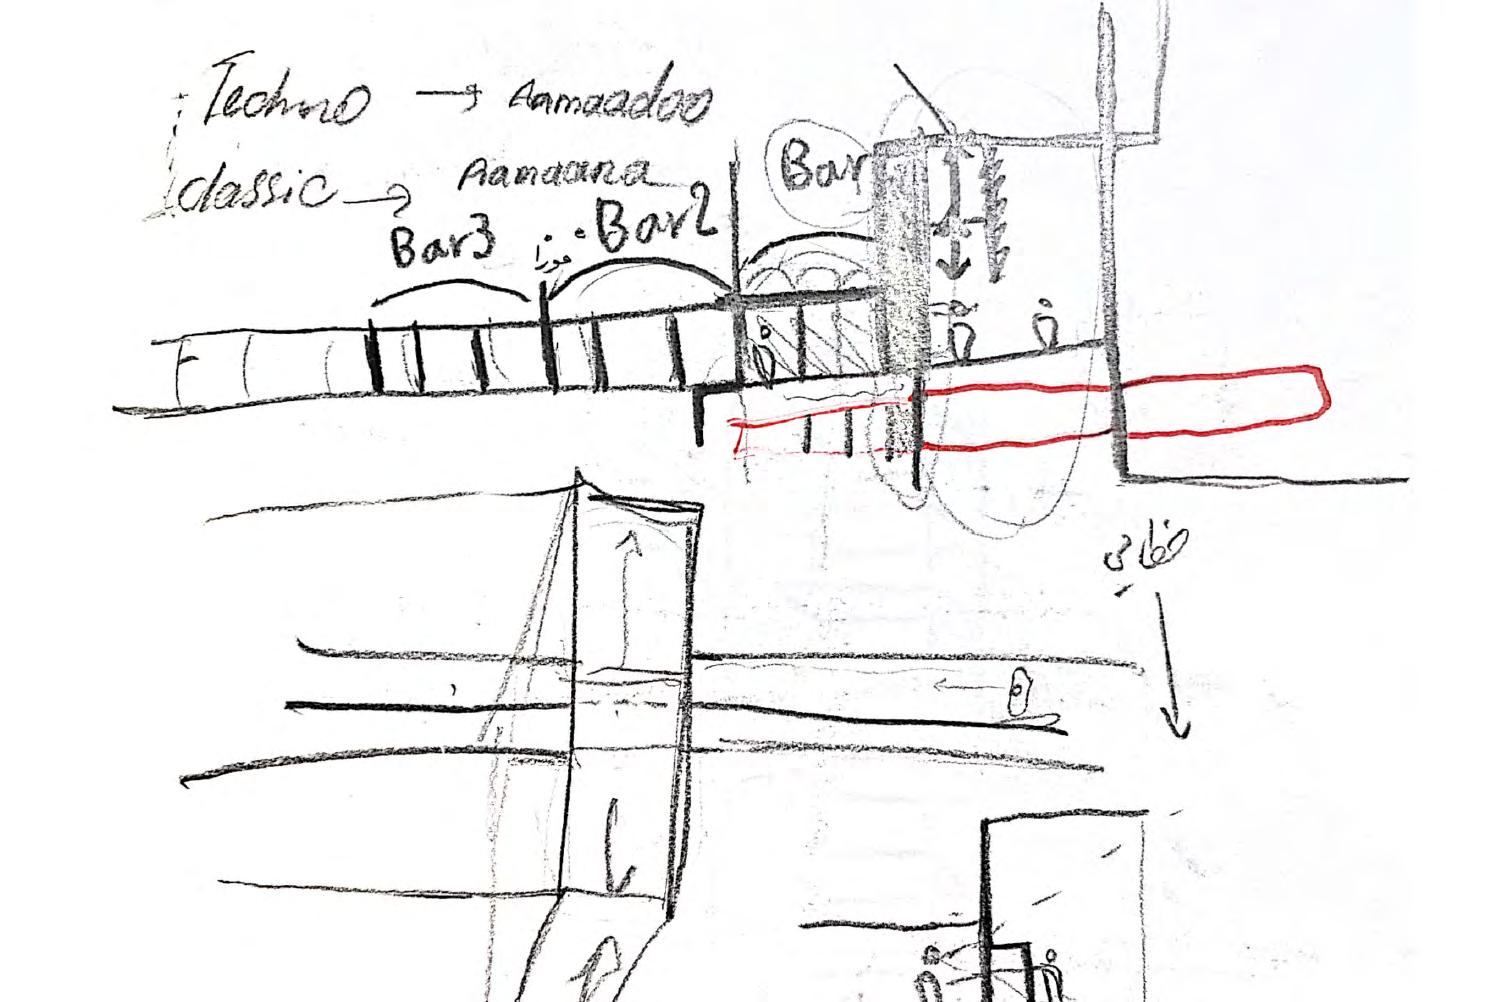 Techno → Aamaadoo
classic → Aamaana
Bar3
Bar2
Bar
حفاری